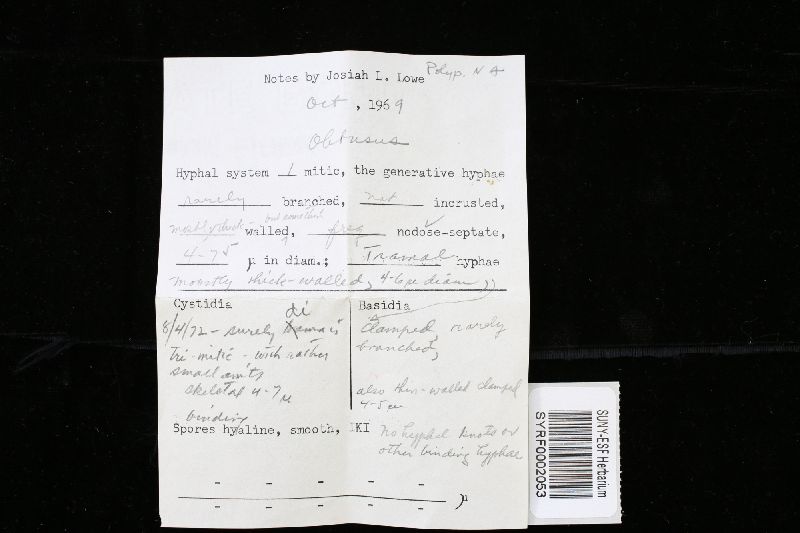 Polyp. N A
Notes by Josiah L. Lowe
Oct, 1969
Obtusus
Hyphal system 1 mitic, the generative hyphae
rarely branched, not incrusted,
mostly thick-walled, freq nodose-septate,
4-7.5 µ in diam.; Tramal hyphae
moostly thick-walled, 4-6µ diam,
Cystidia
8/4/72 - surely di
tri-mitic - with rather
small amts
skeletal 4-7µ
binding
Basidia
Clamped, rarely
branched,
also thin-walled clamped
4-5µ
Spores hyaline, smooth, IKI
no hyphal knots or
other binding hyphae
- - - - -
µ
- - - - -
SUNY-ESF Herbarium
SYRF0002053